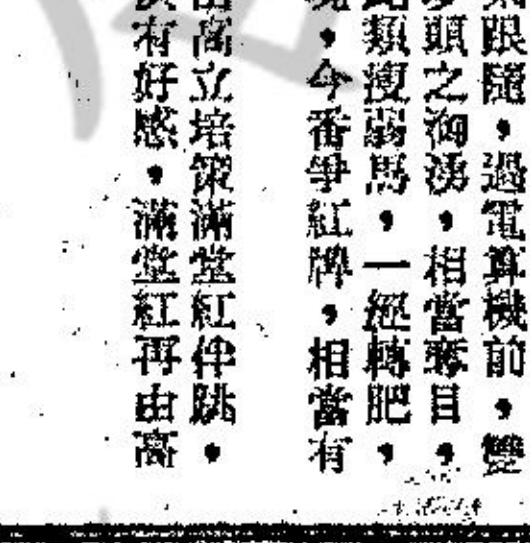 跟隨，過電算機前，雙
頭之海湧，相當奪目，
類瘦弱馬，一經轉肥，
，今番爭紅牌，相當有
高立培策滿堂紅伴跳，
有好感，滿堂紅再由高